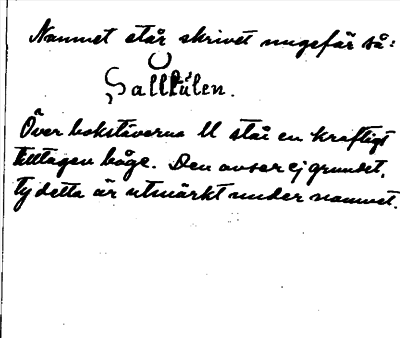 Namnet står skrivet ungefär så:
Sallkulen.
Över bokstäverna ll står en kraftigt
tilltagen båge. Den avser ej grundet,
ty detta är utmärkt under namnet.